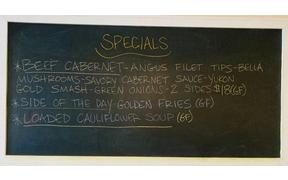 SPECIALS
*BEEF CABERNET-ANGUS FILET TIPS-BELLA
MUSHROOMS-SAVORY CABERNET SAUCE-YUKON
GOLD SMASH-GREEN ONIONS-2 SIDES $18(GF)
*SIDE OF THE DAY GOLDEN FRIES (GF)
*LOADED CAULIFLOWER SOUP (GF)